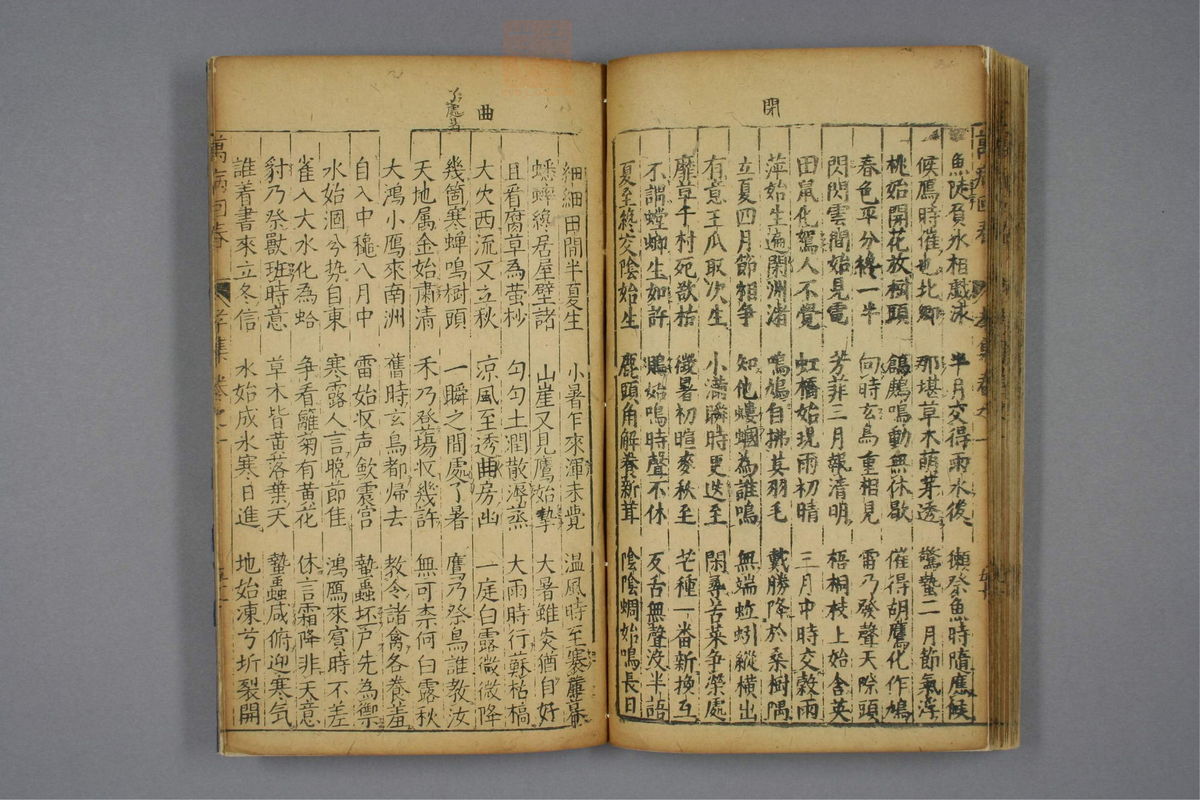 閉
魚陟負冰相戲泳 半月交得雨水後 獺祭魚時隨應候
候鴈時催也北鄉 那堪草木萌芽透 驚蟄二月節氣浮
桃始開花放樹頭 鶬鶊鳴動無休歇 催得胡鷹化作鳩
春色平分纔一半 向時玄鳥重相見 雷乃發聲天際頭
閃閃雲間始見電 芳菲三月報清明 梧桐枝上始含英
田鼠化鴽人不覺 虹橋始現雨初晴 三月中時交穀雨
萍始生遍閑洲渚 鳴鳩自拂其羽毛 戴勝降於桑樹隅
立夏四月節相爭 知他螻蟈為誰鳴 無端蚯蚓縱橫出
有意王瓜取次生 小滿瞬時更迭至 閑尋苦菜爭榮處
靡草千村死欲枯 微暑初暄麥秋至 芒種一番新換互
不謂螳螂生如許 鵙始鳴時聲不休 反舌無聲沒半語
夏至終交陰始生 鹿頭角解養新茸 陰陰蜩始鳴長日
曲
了處易
細細田間半夏生 小暑乍來渾未覺 温風時至褰簾幕
蟋蟀纔居屋壁諸 山崖又見鷹始摯 大暑雖炎猶自好
且看腐草為萤杪 勻勻土潤散溽蒸 大雨時行蘇枯槁
大火西流又立秋 凉風至透曲房幽 一庭白露微微降
幾箇寒蟬鳴樹頭 一瞬之間處了暑 鷹乃祭鳥誰教汝
天地属金始肅清 禾乃登塲收幾許 無可柰何白露秋
大鴻小鴈來南洲 舊時玄鳥都歸去 教令諸禽各養羞
自入中穐八月中 雷始收声歛震宫 蟄蟲坯戸先為禦
水始涸兮势自東 寒露人言晚節佳 鴻鴈來賓時不差
雀入大水化為蛤 争看籬菊有黃花 休言霜降非天意
豺乃祭獸班時意 草木皆黃落葉天 蟄蟲咸俯迎寒氣
誰着書來立冬信 水始成氷寒日進 地始凍兮坼裂開
萬病回春 孝集 卷之一